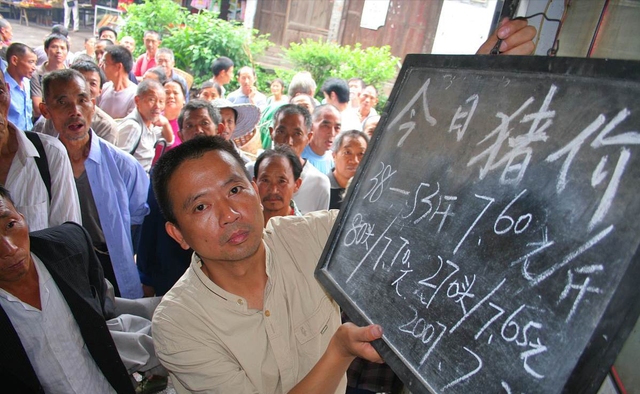 今日猪价
38—53斤 7.60元/斤
80头/7.70元 270头/7.65元
2007.7.